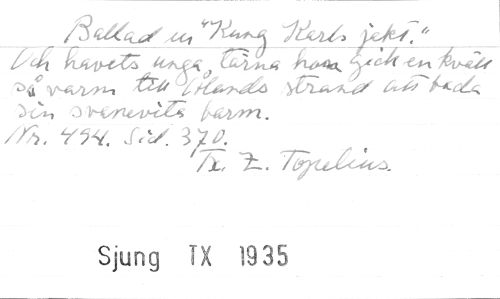 Ballad ur "Kung Karls jakt."
Och havets unga tärna hon gick en kväll
så varm till Ålands strand att bada
sin svanevita barm.
Nr. 494. Sid. 370.
Tx. Z. Topelius.
Sjung TX 1935